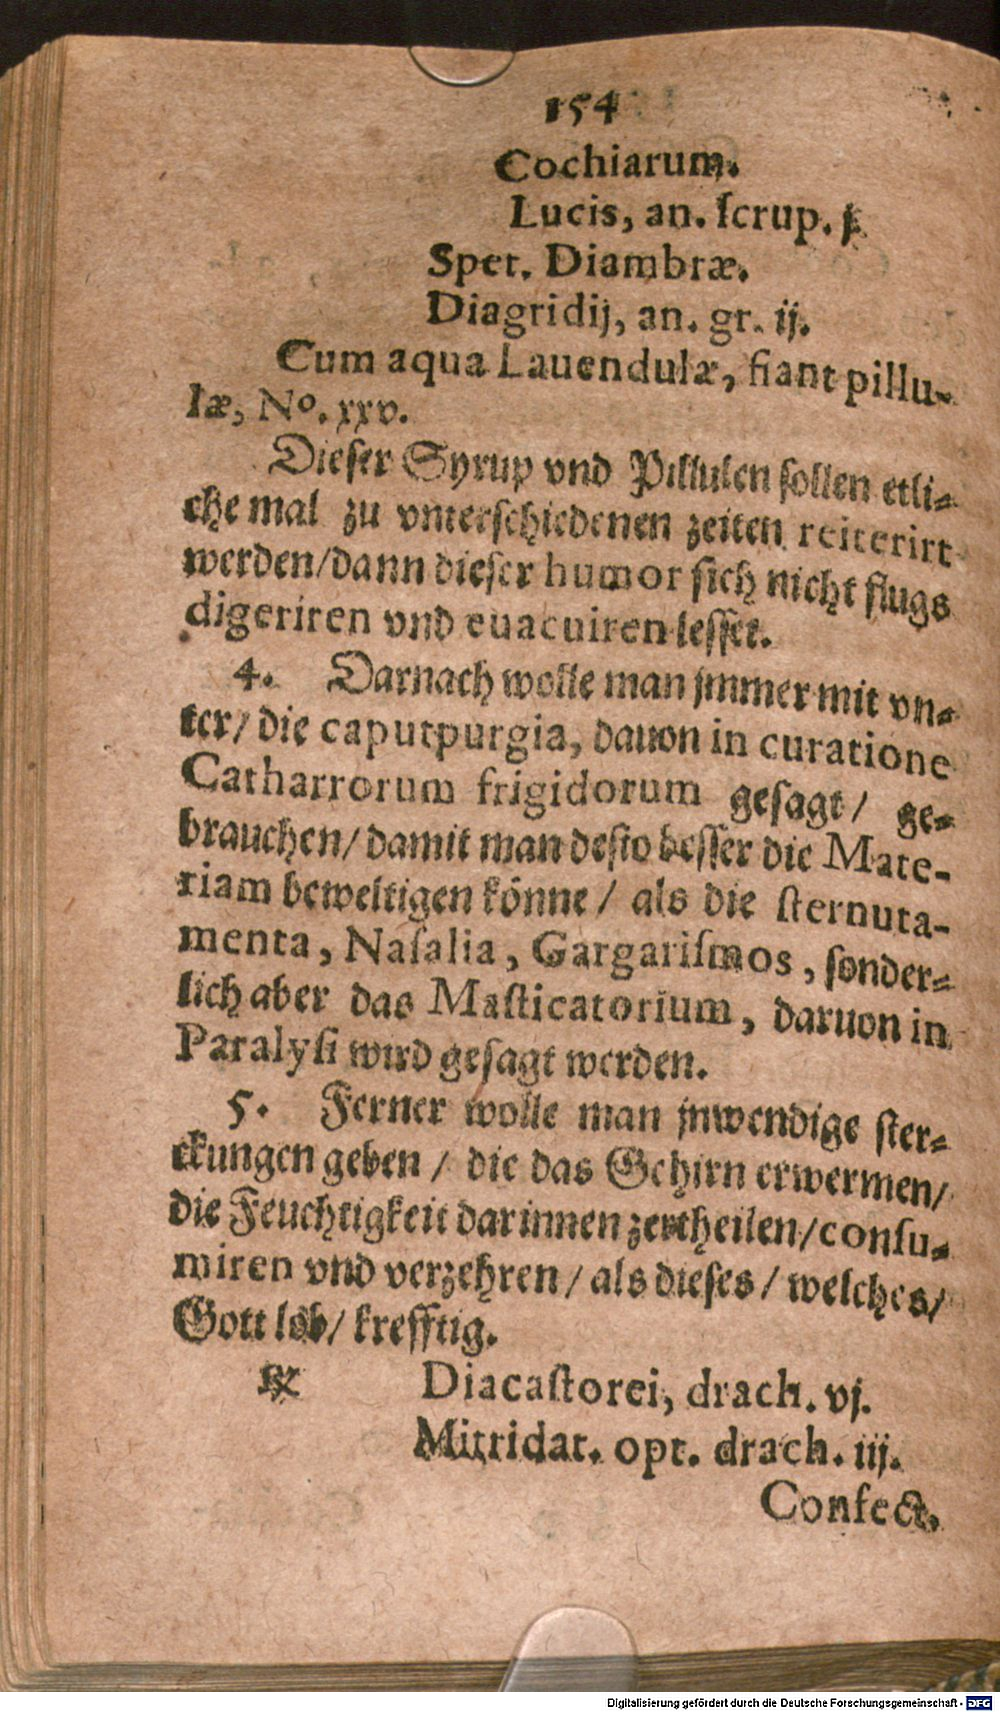 154
Cochiarum.
Lucis, an. ſcrup. j.
Spec. Diambræ.
Diagridij, an. gr. ij.
Cum aqua Lauendulæ, fiant pillu-
læ, Nº. xxv.
Dieſer Syrup vnd Pillulen ſollen etli⸗
che mal zu vnterſchiedenen zeiten reiterirt
werden/dann dieſer humor ſich nicht flugs
digeriren vnd euacuiren leſſet.
4. Darnach wolle man jmmer mit vn⸗
ter/ die caputpurgia, dauon in curatione
Catharrorum frigidorum geſagt/ ge⸗
brauchen/ damit man deſto beſſer die Mate-
riam beweltigen könne/ als die ſternuta-
menta, Naſalia, Gargariſmos, ſonder⸗
lich aber das Maſticatorium, daruon in
Paralyſi wird geſagt werden.
5. Ferner wolle man jnwendige ſter⸗
ckungen geben/ die das Gehirn erwermen/
die Feuchtigkeit darinnen zertheilen/conſu⸗
miren vnd verzehren/ als dieſes/ welches/
Gott lob/ krefftig.
℞ Diacaſtorei, drach. vj.
Mitridat. opt. drach. iij.
Confect.
Digitalisierung gefördert durch die Deutsche Forschungsgemeinschaft - DFG